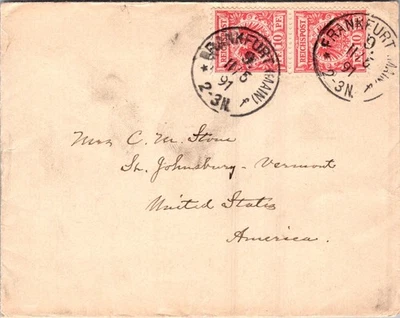 REICHSPOST 10 PF. REICHSPOST 10 PF.
FRANKFURT (MAIN)
9
11/5
91
2-3N.
FRANKFURT (MAIN)
9
11/5
91
2-3N.
Mrs C. M. Stone
St. Johnsbury - Vermont
United States
America.